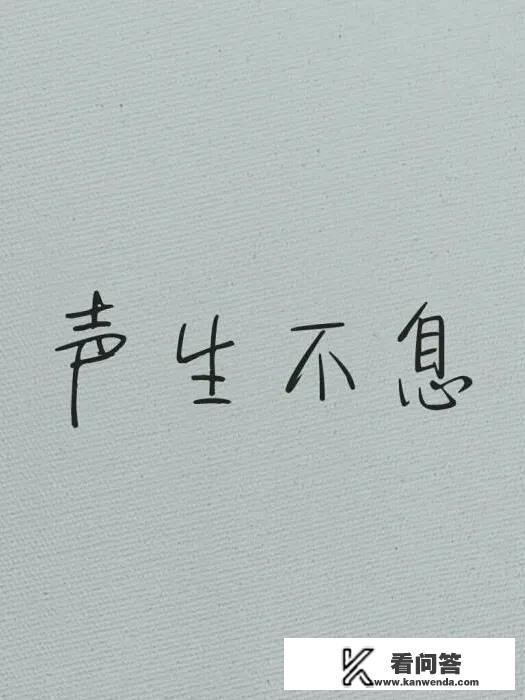 声生不息
看问答
www.kanwenda.com